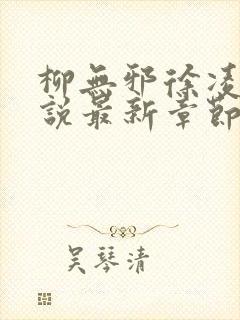 柳無邪徐凌
說最新章節
吴琴清